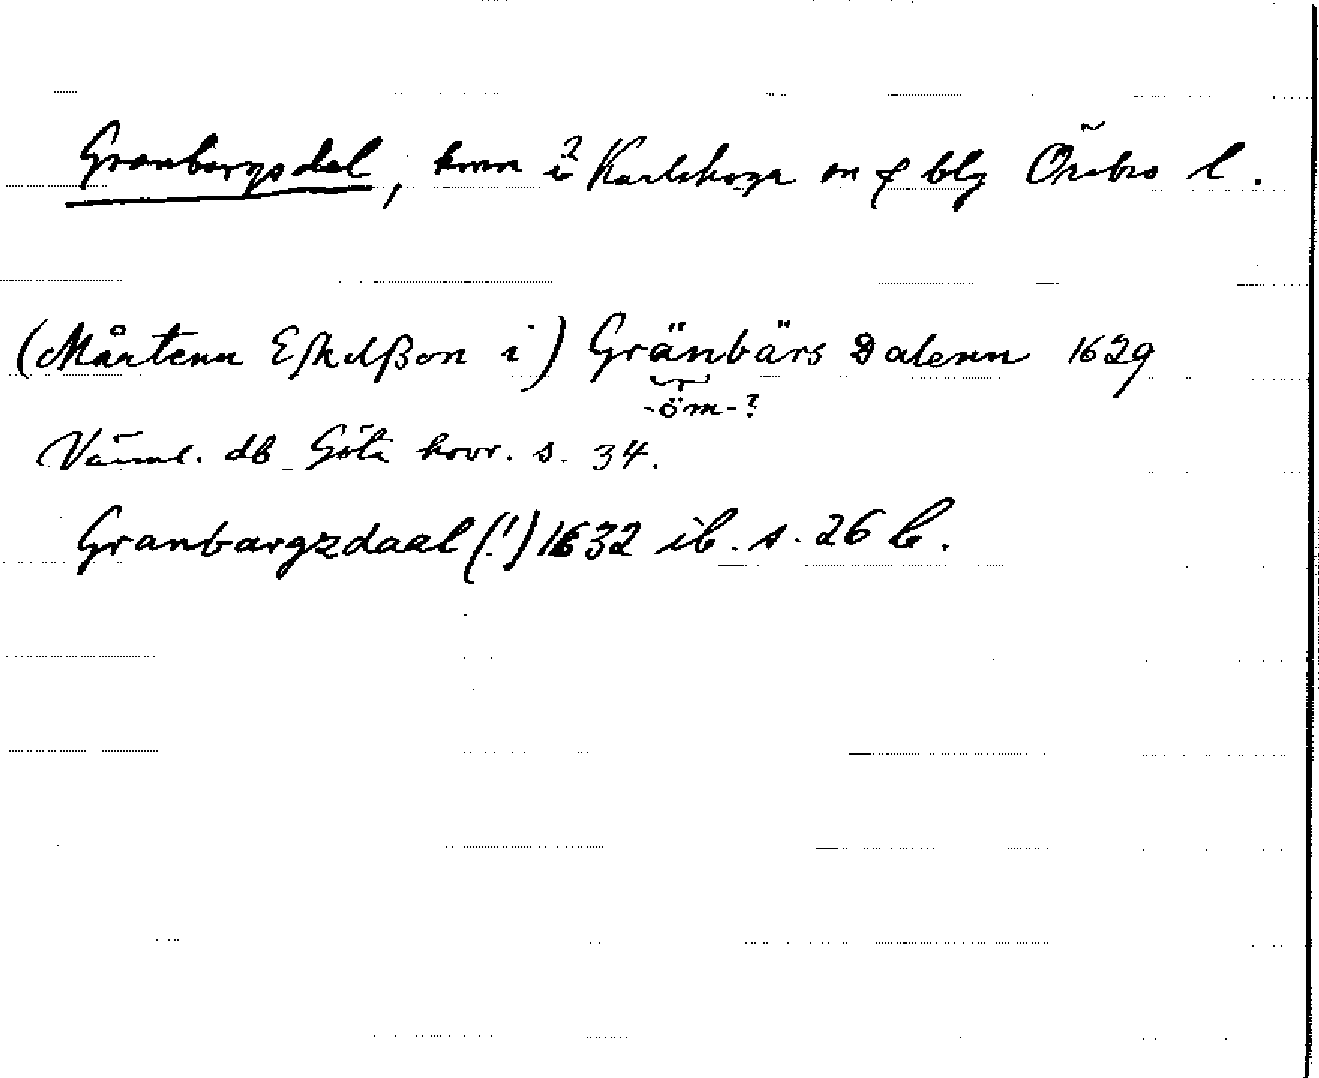 Granbergsdal, hmn i Karlskoga sn o blg Örebro l.
(Mårtenn Eskelßon i) Gränbärs Dalenn 1629
-öm-?
Värml. db Göta hovr. s. 34.
Granbargzdaal (!) 1632 ib. s. 26 b.